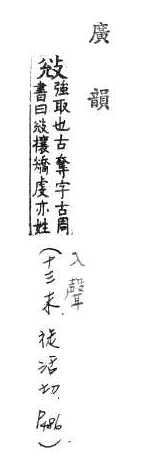 廣韻
敓
強取也古奪字古周
書曰敓攘矯虔亦姓
入聲
(十三末. 徒活切. P486).